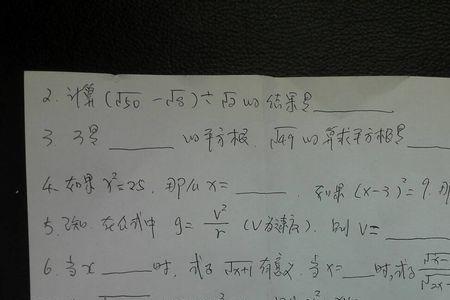 2. 计算 (√50 - √8) ÷ √2 的结果是______
3. 3是______的平方根. √49 的算术平方根是______
4. 如果 x²=25. 那么 x=______. 如果 (x-3)²=9. 那
5. 已知. 在公式中 g= v²/r (V为速度). 则 V=______
6. 当x______时. 式子 √x+1 有意义. 当x=____时,式子 √x- / √2x-